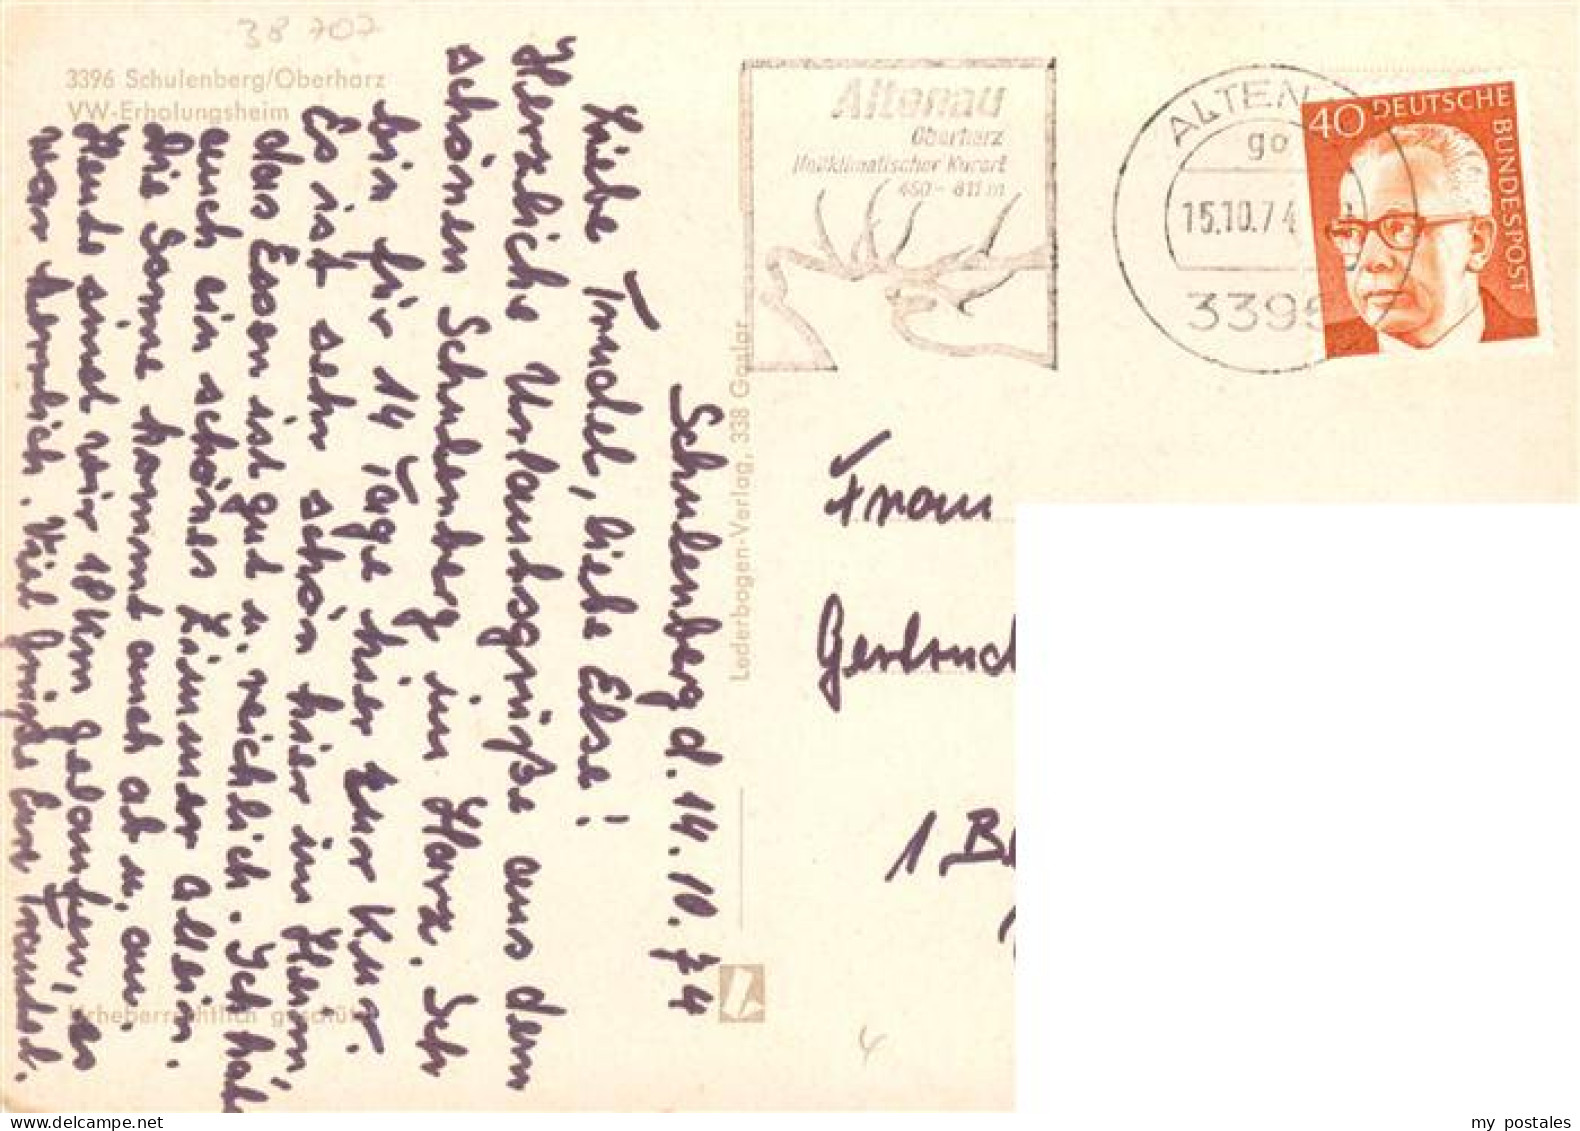 38 707
3396 Schulenberg/Oberharz
VW-Erholungsheim
Schulenberg d. 14.10.74
Liebe Trudel, liebe Else!
Herzliche Urlaubsgrüße aus dem
schönen Schulenberg im Harz. Ich
bin für 14 Tage hier zur Kur.
Es ist sehr schön hier im Heim,
das Essen ist gut u. reichlich. Ich hab
auch ein schönes Zimmer allein.
Die Sonne kommt auch ab u. an.
Heute sind wir 18 km gelaufen, es
war herrlich. Viel Grüße Eure Traudel.
Urheberrechtlich geschützt
Lederbogen-Verlag, 338 Goslar
Altenau
Oberharz
Heilklimatischer Kurort
450-811 m
ALTEN
go
15.10.74
3395
40 DEUTSCHE
BUNDESPOST
Frau
Gertrud
1 B
4
my postales